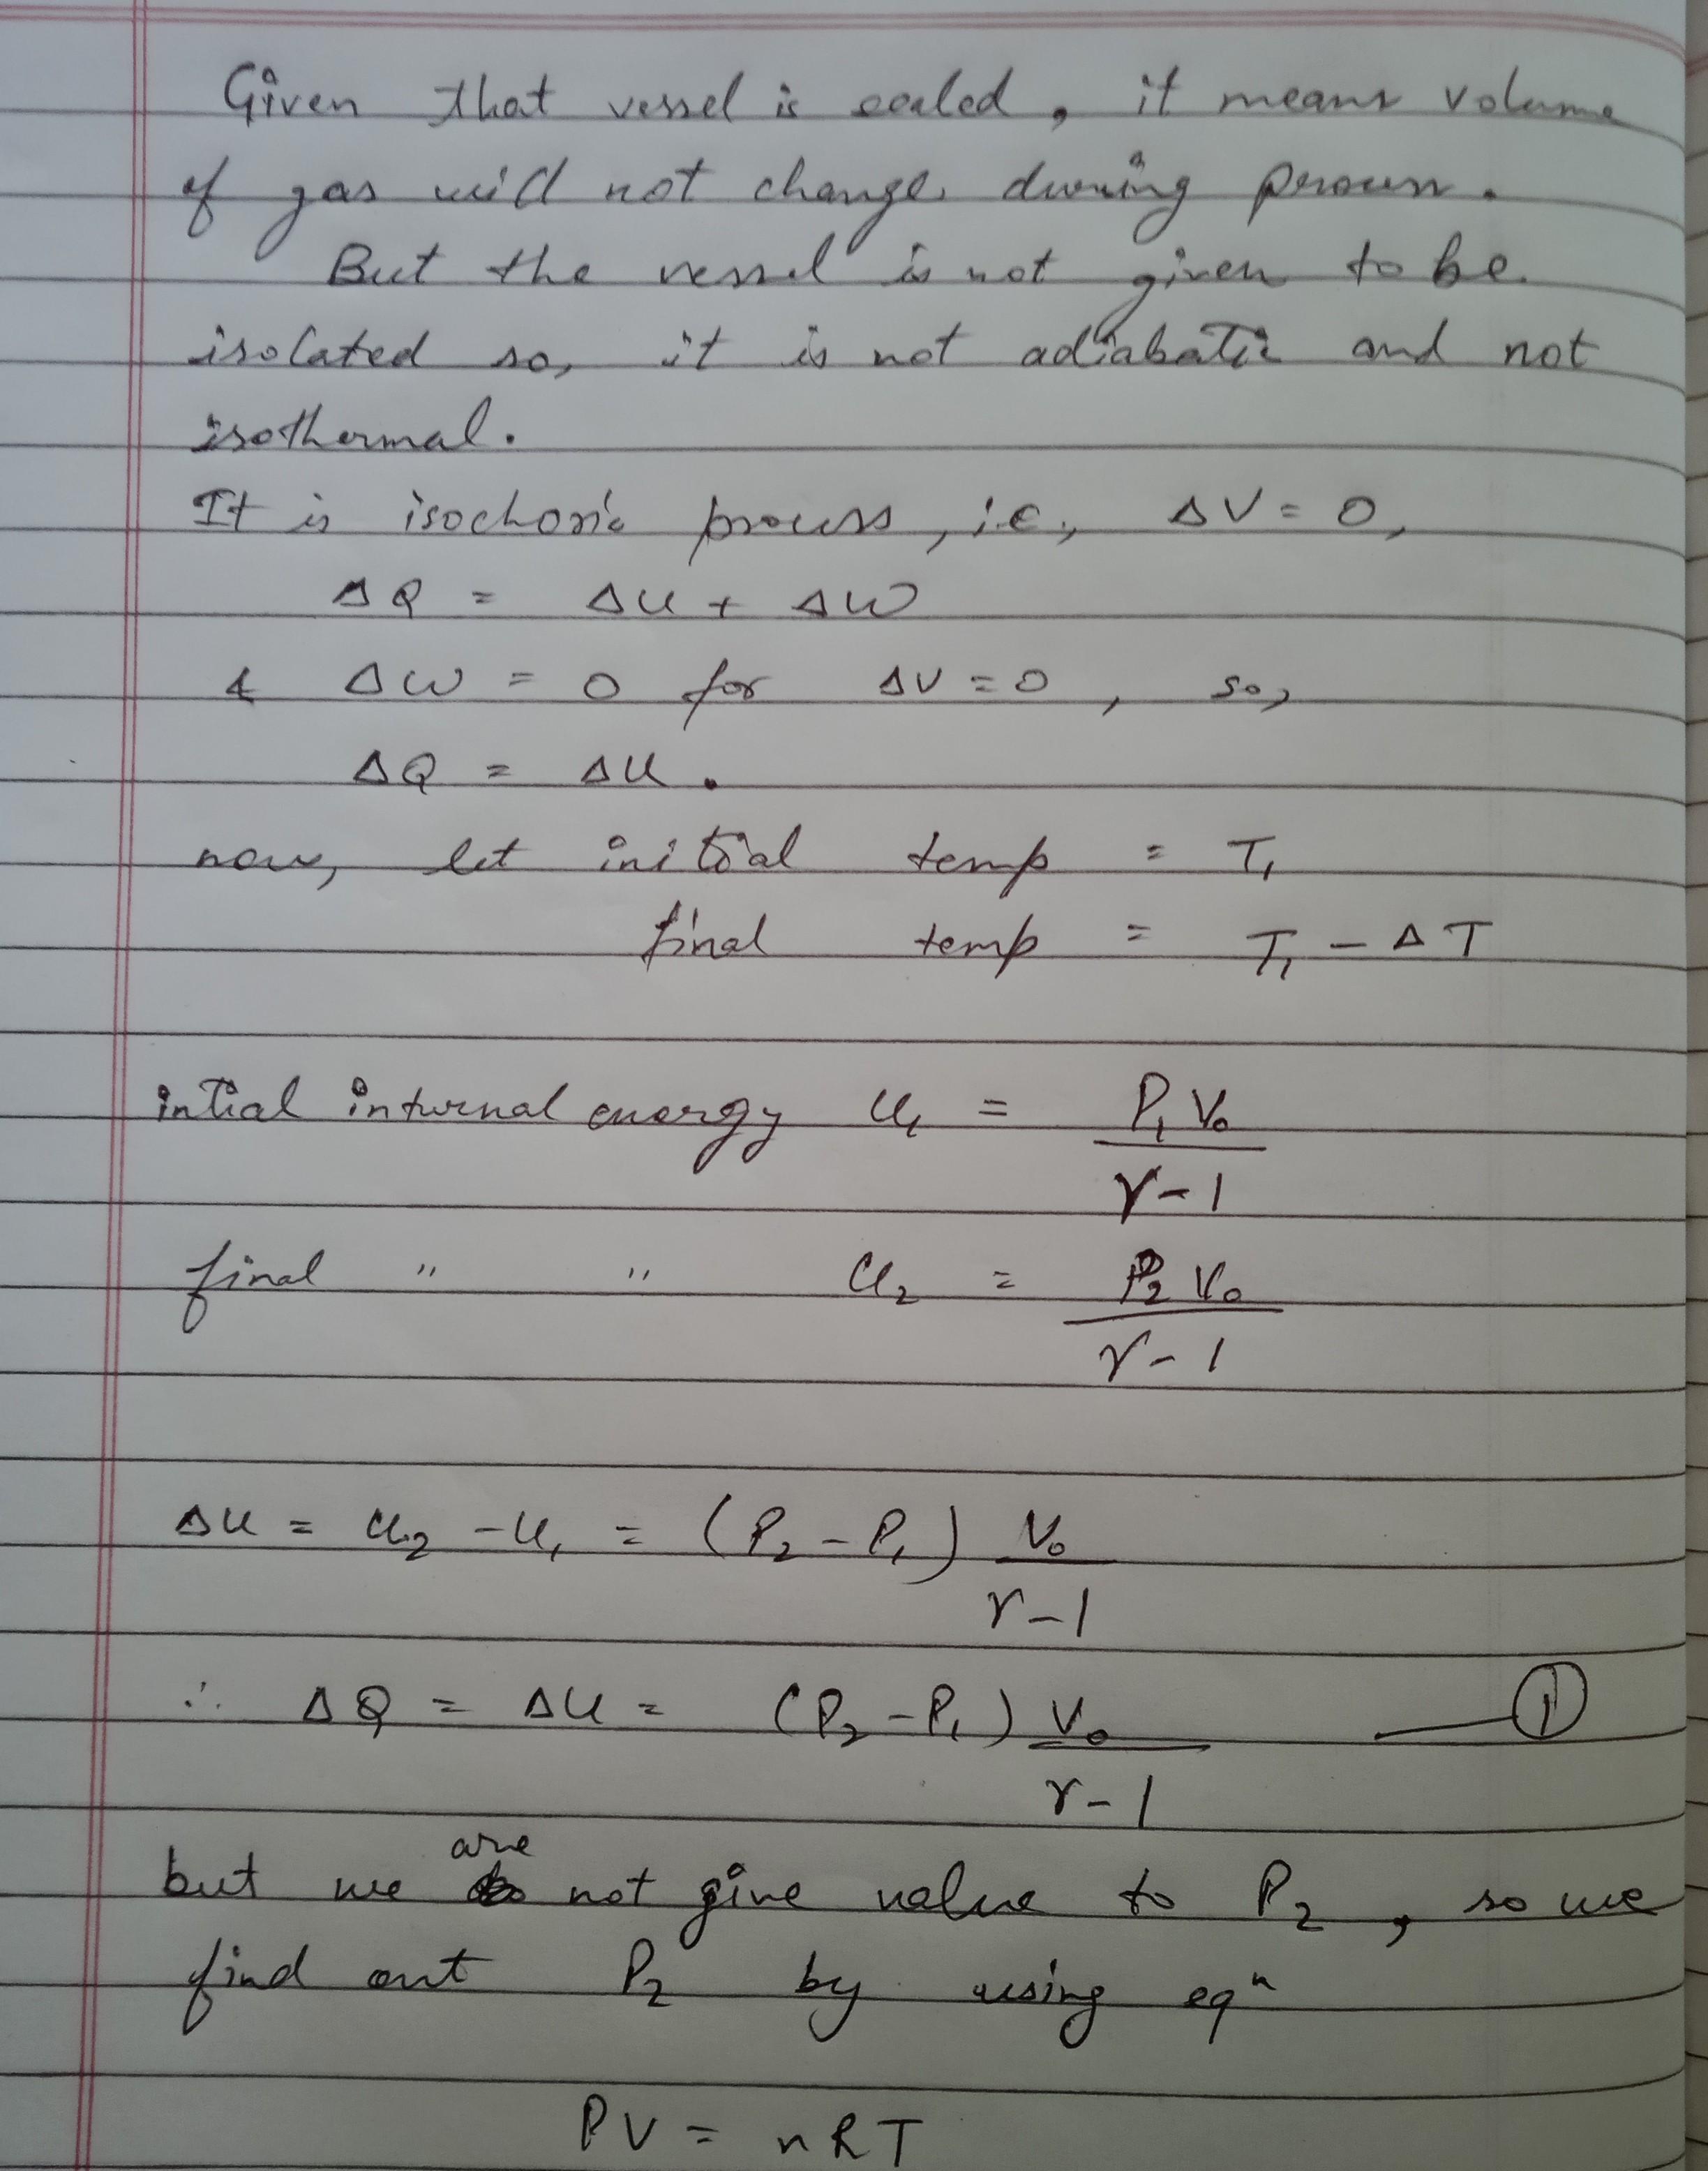 Given that vessel is sealed, it means volume
of gas will not change during process.
But the vessel is not given to be
isolated so, it is not adiabatic and not
isothermal.
It is isochoric process, i.e., ΔV = 0,
ΔQ = ΔU + ΔW
& ΔW = 0 for ΔV = 0, so,
ΔQ = ΔU.
now, let initial temp = T₁
final temp = T₁ - ΔT
intial internal energy U₁ = P₁V₀ / γ-1
final " " U₂ = P₂V₀ / γ-1
ΔU = U₂ - U₁ = (P₂ - P₁) V₀ / γ-1
∴ ΔQ = ΔU = (P₂ - P₁) V₀ / γ-1 — ①
but we are not give value to P₂, so we
find out P₂ by using eqⁿ
PV = nRT